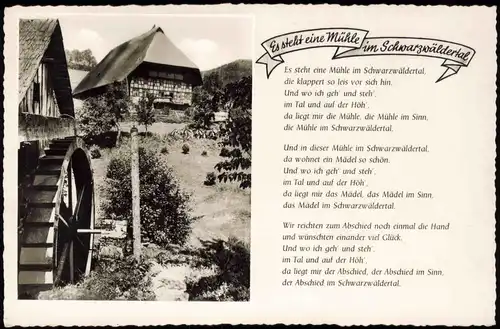 Es steht eine Mühle im Schwarzwäldertal
Es steht eine Mühle im Schwarzwäldertal,
die klappert so leis vor sich hin,
Und wo ich geh' und steh',
im Tal und auf der Höh',
da liegt mir die Mühle, die Mühle im Sinn,
die Mühle im Schwarzwäldertal.
Und in dieser Mühle im Schwarzwäldertal,
da wohnet ein Mädel so schön.
Und wo ich geh' und steh',
im Tal und auf der Höh',
da liegt mir das Mädel, das Mädel im Sinn,
das Mädel im Schwarzwäldertal.
Wir reichten zum Abschied noch einmal die Hand
und wünschten einander viel Glück.
Und wo ich geh' und steh',
im Tal und auf der Höh',
da liegt mir der Abschied, der Abschied im Sinn,
der Abschied im Schwarzwäldertal.